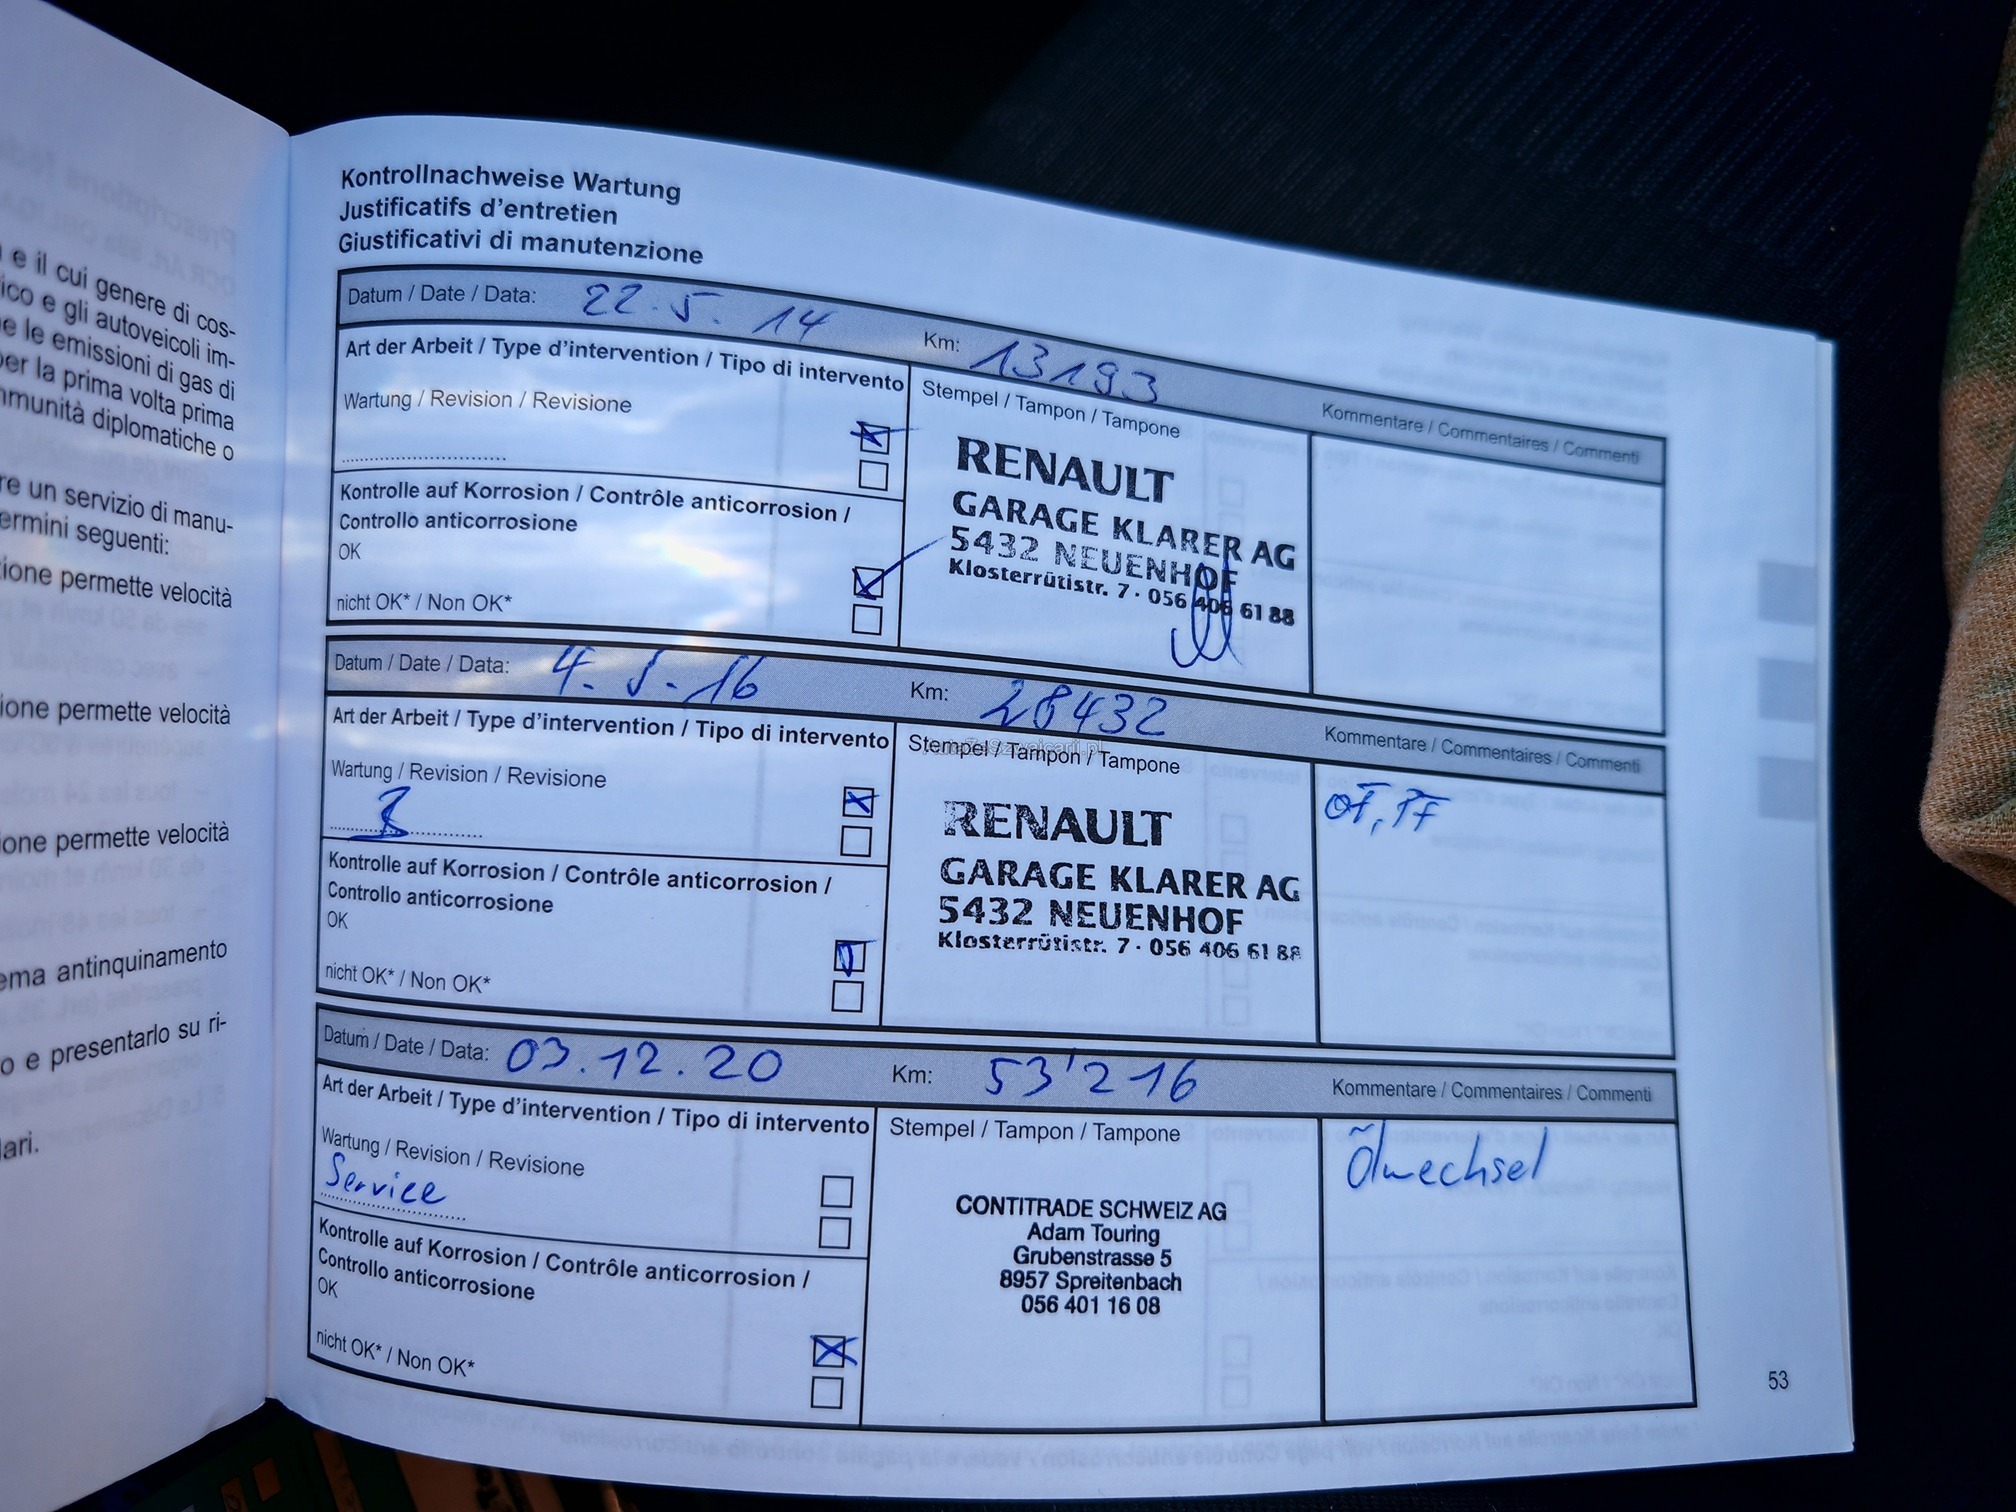 e il cui genere di cos-
ico e gli autoveicoli im-
e le emissioni di gas di
er la prima volta prima
munità diplomatiche o
re un servizio di manu-
ermini seguenti:
ione permette velocità
ione permette velocità
one permette velocità
ema antinquinamento
o e presentarlo su ri-
lari.
Kontrollnachweise Wartung
Justificatifs d'entretien
Giustificativi di manutenzione
Datum / Date / Data: 22.5.14 Km: 13193
Kommentare / Commentaires / Commenti
Art der Arbeit / Type d'intervention / Tipo di intervento
Wartung / Revision / Revisione
Kontrolle auf Korrosion / Contrôle anticorrosion /
Controllo anticorrosione
OK
nicht OK* / Non OK*
Stempel / Tampon / Tampone
RENAULT
GARAGE KLARER AG
5432 NEUENHOF
Klosterrütistr. 7 · 056 406 61 88
Datum / Date / Data: 4.5.16 Km: 28432
Kommentare / Commentaires / Commenti
Art der Arbeit / Type d'intervention / Tipo di intervento
Wartung / Revision / Revisione
Kontrolle auf Korrosion / Contrôle anticorrosion /
Controllo anticorrosione
OK
nicht OK* / Non OK*
Stempel / Tampon / Tampone
RENAULT
GARAGE KLARER AG
5432 NEUENHOF
Klosterrütistr. 7 · 056 406 61 88
Datum / Date / Data: 03.12.20 Km: 53'216
Kommentare / Commentaires / Commenti
Art der Arbeit / Type d'intervention / Tipo di intervento
Wartung / Revision / Revisione
Service
Kontrolle auf Korrosion / Contrôle anticorrosion /
Controllo anticorrosione
OK
nicht OK* / Non OK*
Stempel / Tampon / Tampone
CONTITRADE SCHWEIZ AG
Adam Touring
Grubenstrasse 5
8957 Spreitenbach
056 401 16 08
Ölwechsel
53